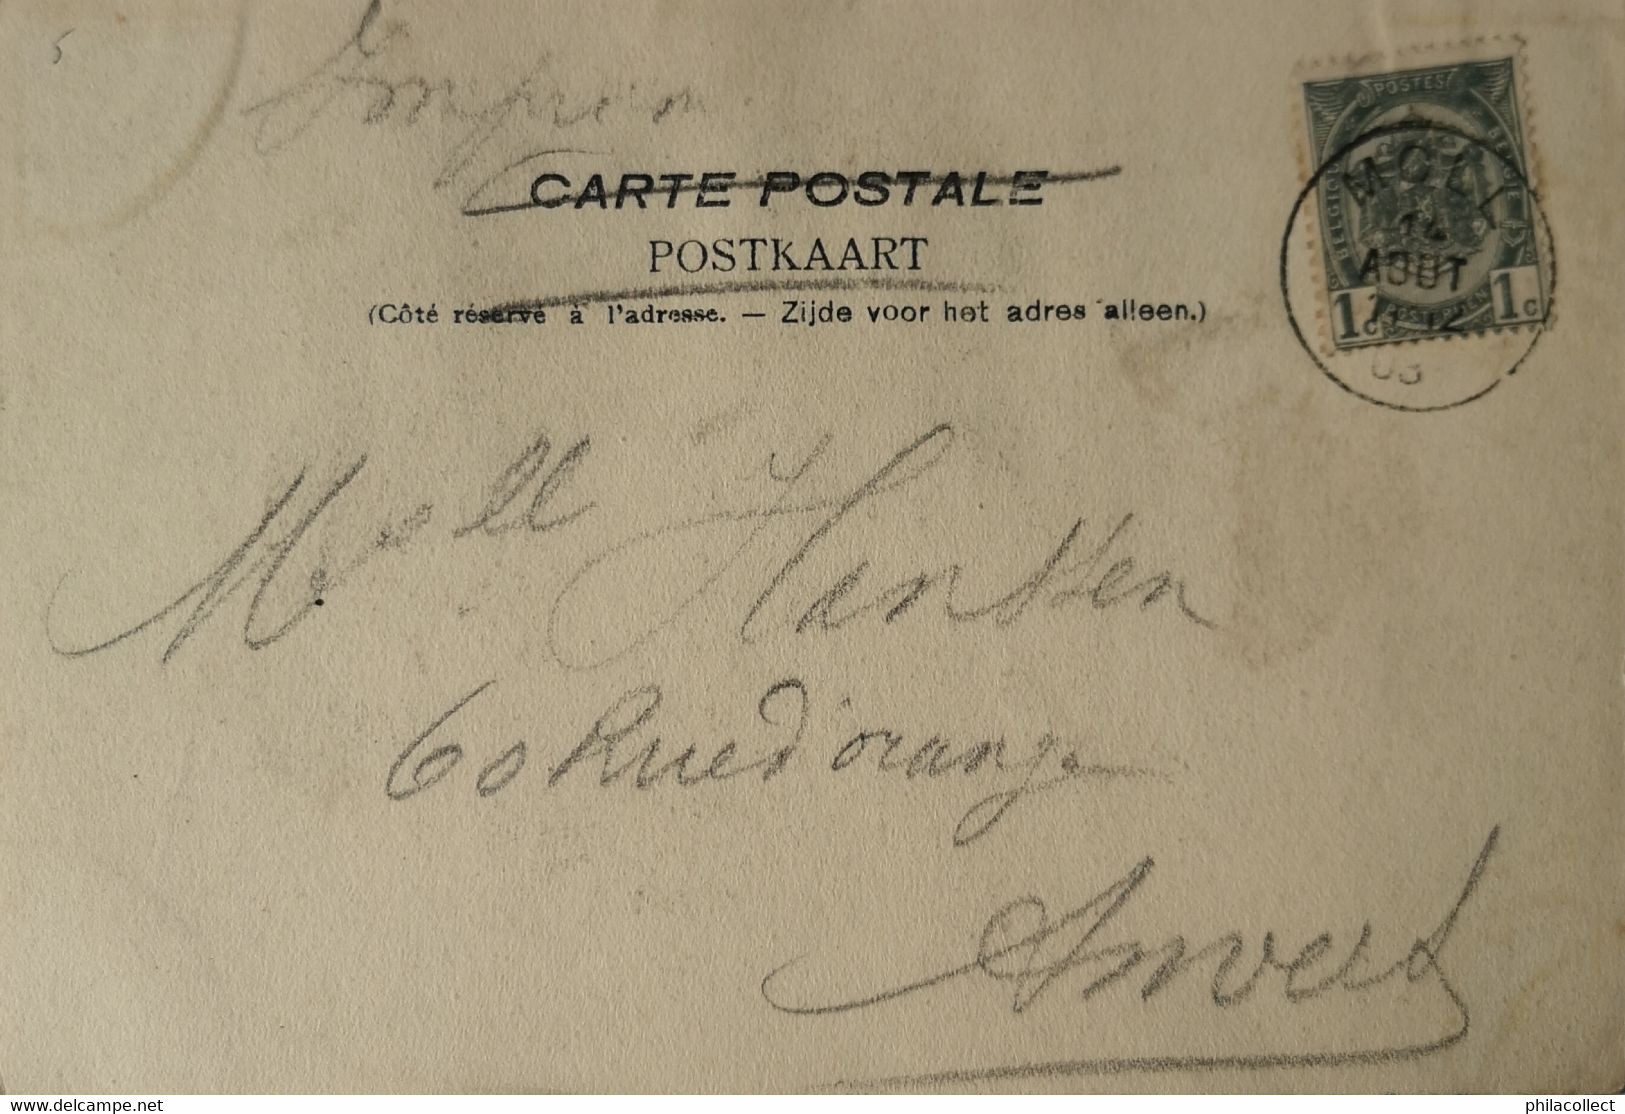 5
CARTE POSTALE
POSTKAART
(Côté réservé à l'adresse. — Zijde voor het adres alleen.)
POSTES
BELGIQUE BELGIË
1c 1c
MOLL
AOUT
03
Mselle
60 Rue d'orange
Anvers
delcampe.net
philacollect